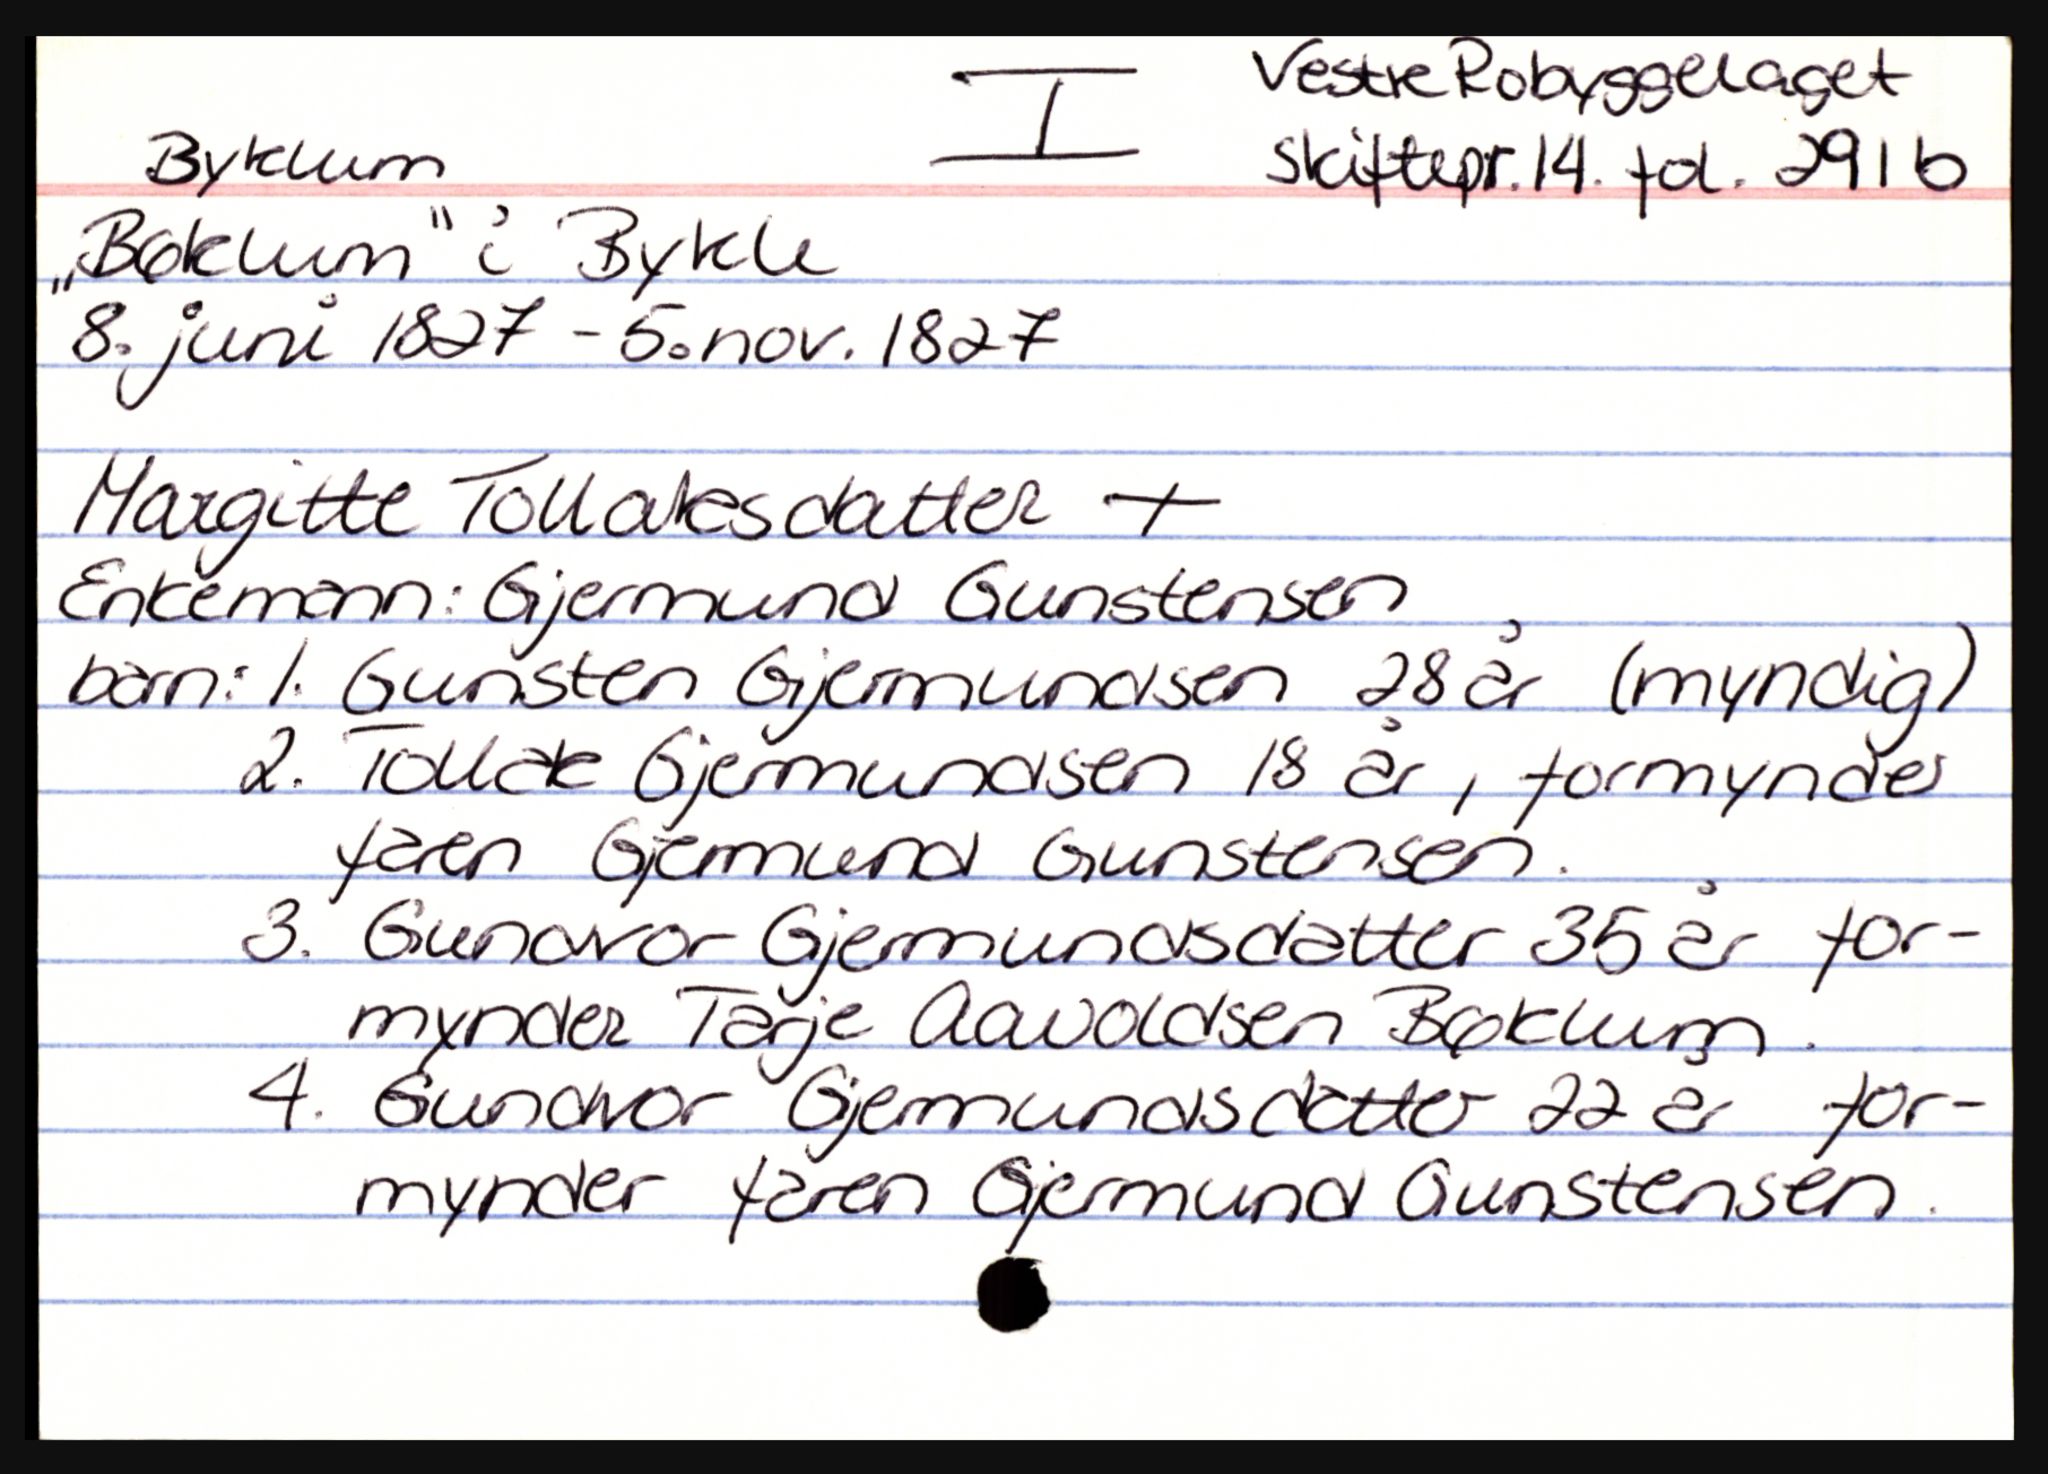 I
Vestre Robyggelaget
Byklum
skiftepr. 14. fol. 291b
„Bøklum" i Bykle
8. juni 1827 - 5. nov. 1827
Margitte Tollaksdatter +
Enkemann: Gjermund Gunstensen
barn: 1. Gunsten Gjermundsen 28 år (myndig)
2. Tollak Gjermundsen 18 år, formynder
faren Gjermund Gunstensen.
3. Gundvor Gjermundsdatter 35 år for-
mynder Tarje Aavoldsen Bøklum.
4. Gundvor Gjermundsdatter 22 år for-
mynder faren Gjermund Gunstensen.